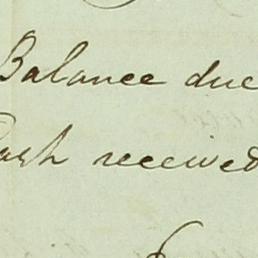 Balance due
Cash received